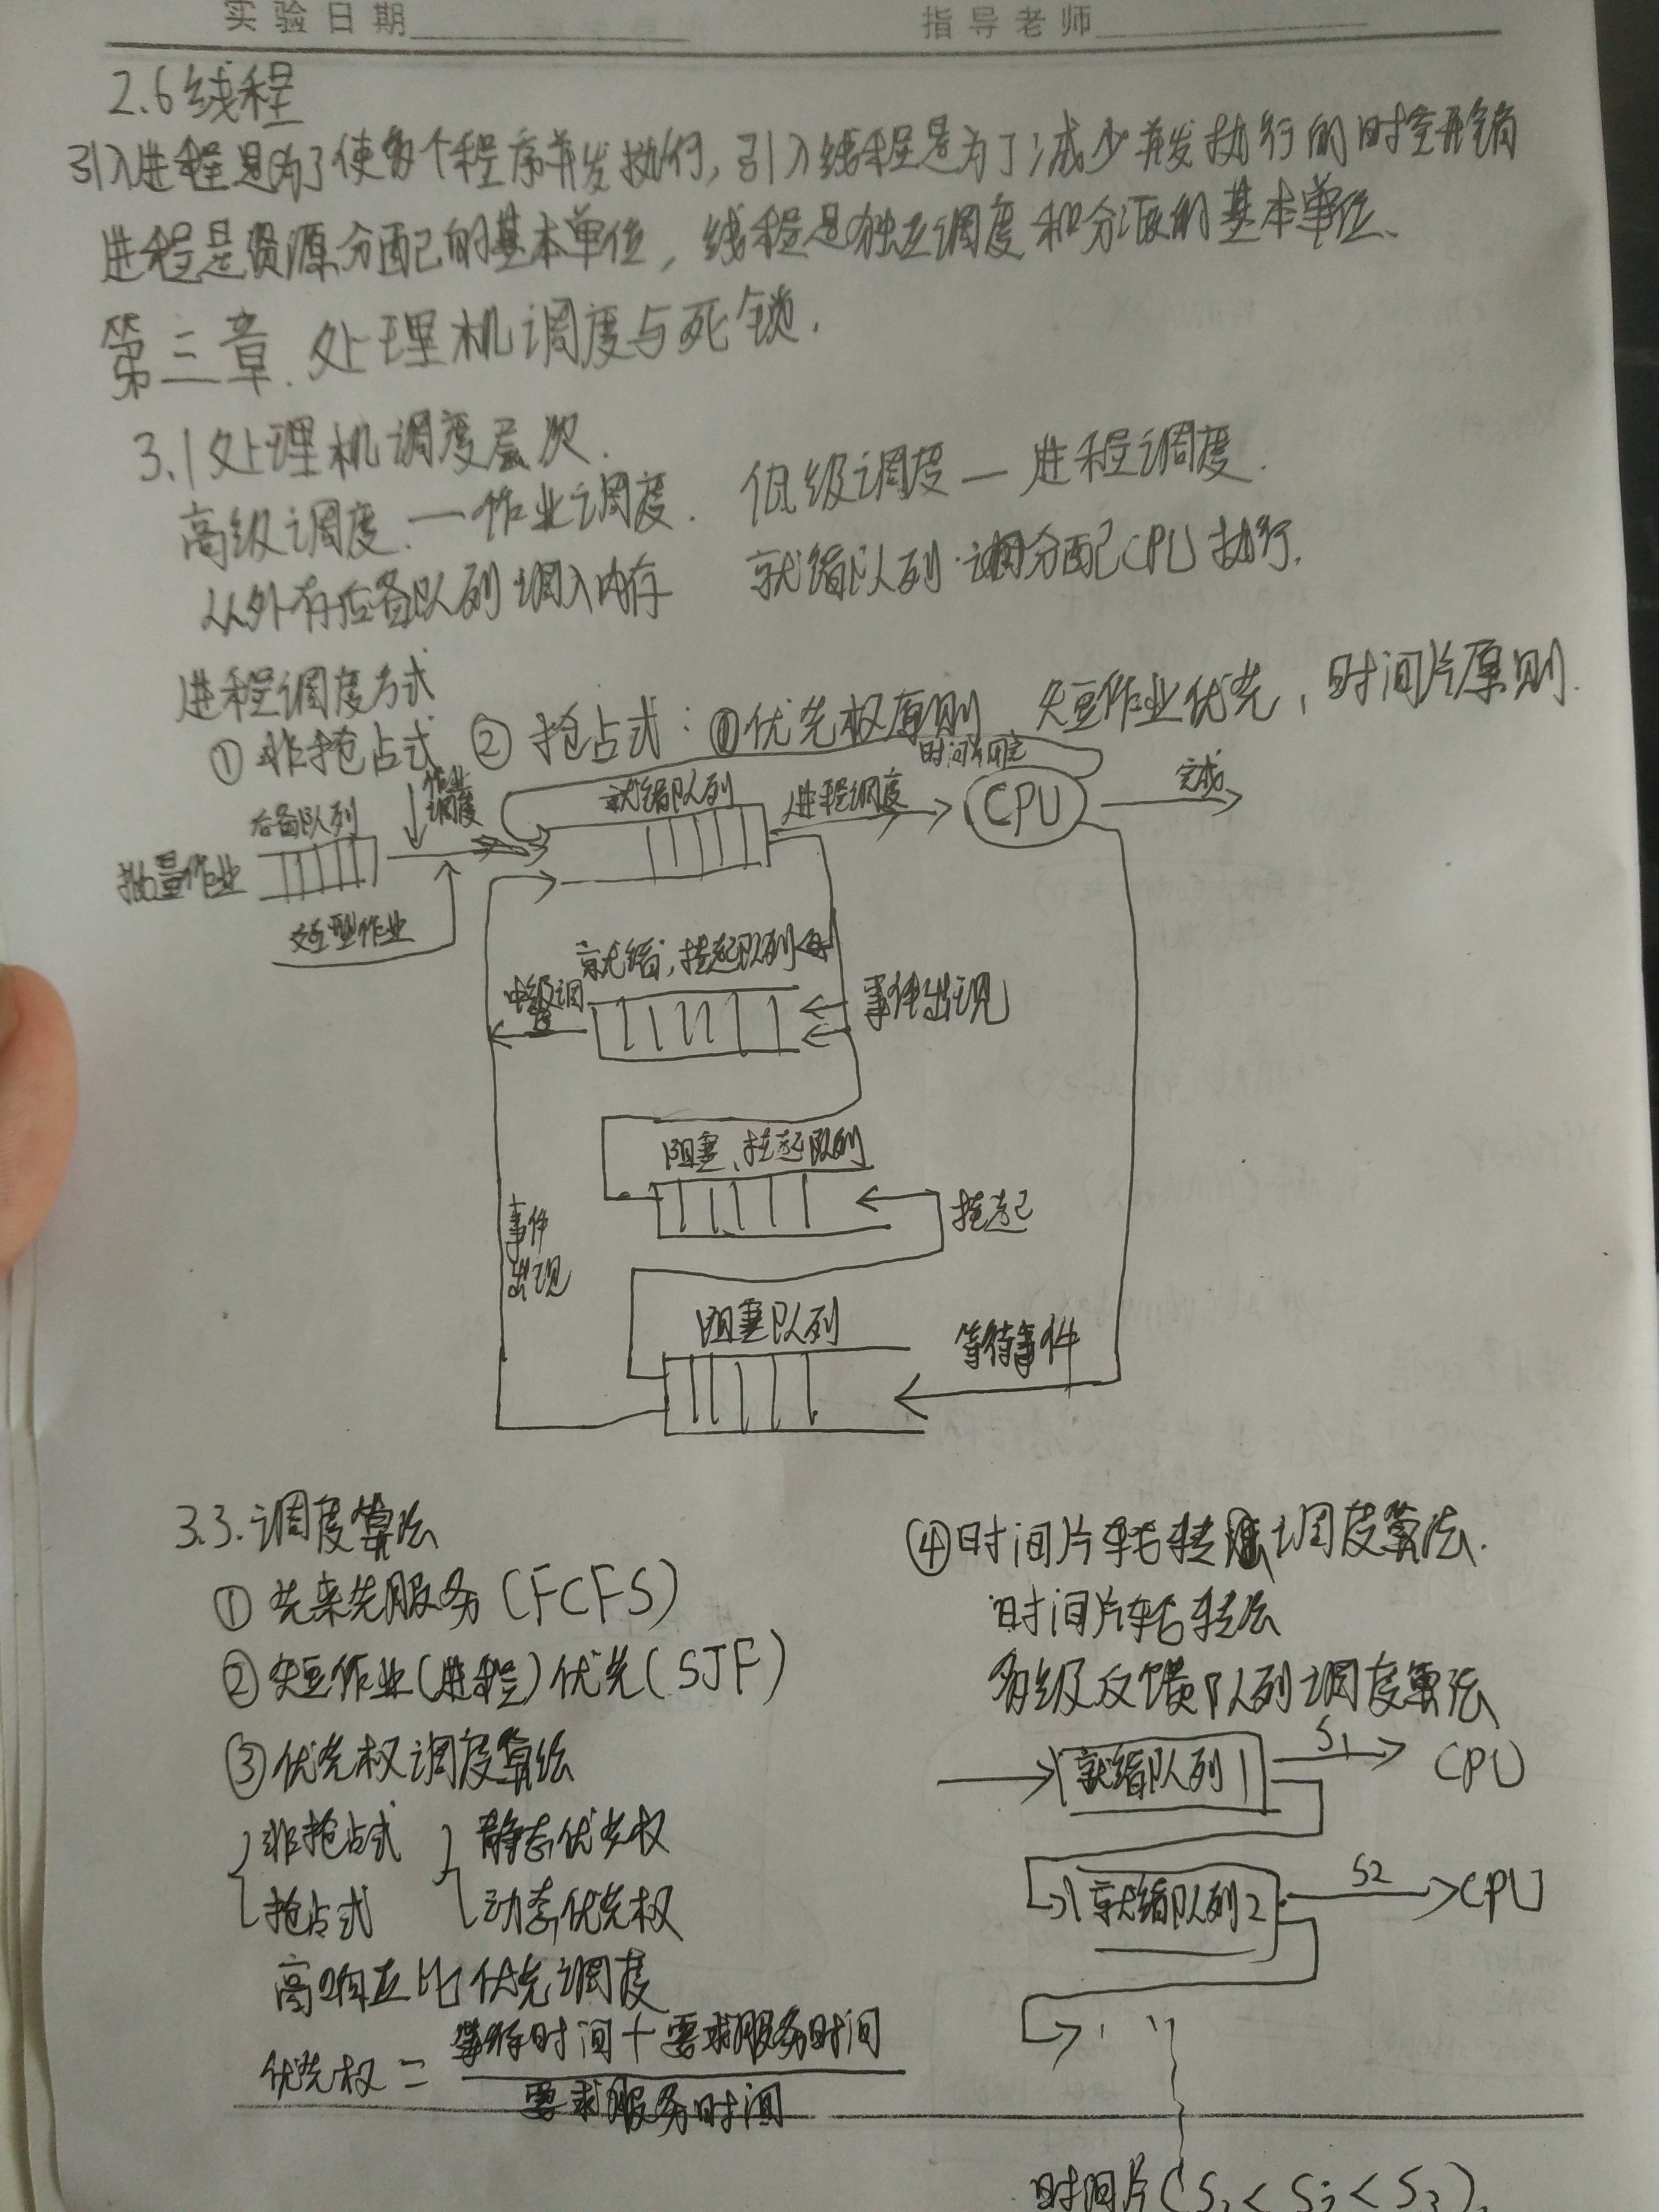 实验日期
指导老师
2.6线程
引入进程是为了使多个程序并发执行,引入线程是为了减少并发执行的时空开销
进程是资源分配的基本单位,线程是独立调度和分派的基本单位、
第三章.处理机调度与死锁.
3.1处理机调度层次.
高级调度.—作业调度.
低级调度—进程调度.
从外存后备队列调入内存
就绪队列 调分配CPU执行.
进程调度方式
①非抢占式 ②抢占式:①优先权原则、短作业优先,时间片原则.
作业调度
后备队列
批量作业
交互型作业
就绪队列
进程调度
时间片用完
CPU
完成
就绪,挂起队列
中级调度
事件出现
阻塞、挂起队列
挂起
事件出现
阻塞队列
等待事件
3.3.调度算法
①先来先服务(FCFS)
②短作业(进程)优先(SJF)
③优先权调度算法
非抢占式
抢占式
静态优先权
动态优先权
高响应比优先调度
优先权=
等待时间+要求服务时间
要求服务时间
④时间片轮转调度算法.
时间片轮转法
多级反馈队列调度算法
就绪队列1
S1
CPU
就绪队列2
S2
CPU
时间片(S1<S2<S3).